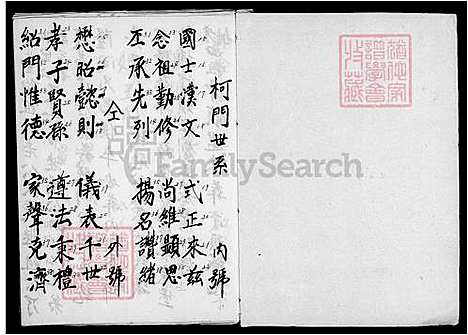 柯門世系 內號
國士漢文 式正來茲
念祖勤修 尚維顯思
丕承先列 揚名讚緒
仝 外號
懋昭懿則 儀表千世
孝子賢孫 遵法秉禮
紹門惟德 家聲克濟
FamilySearch
譜學會
收藏